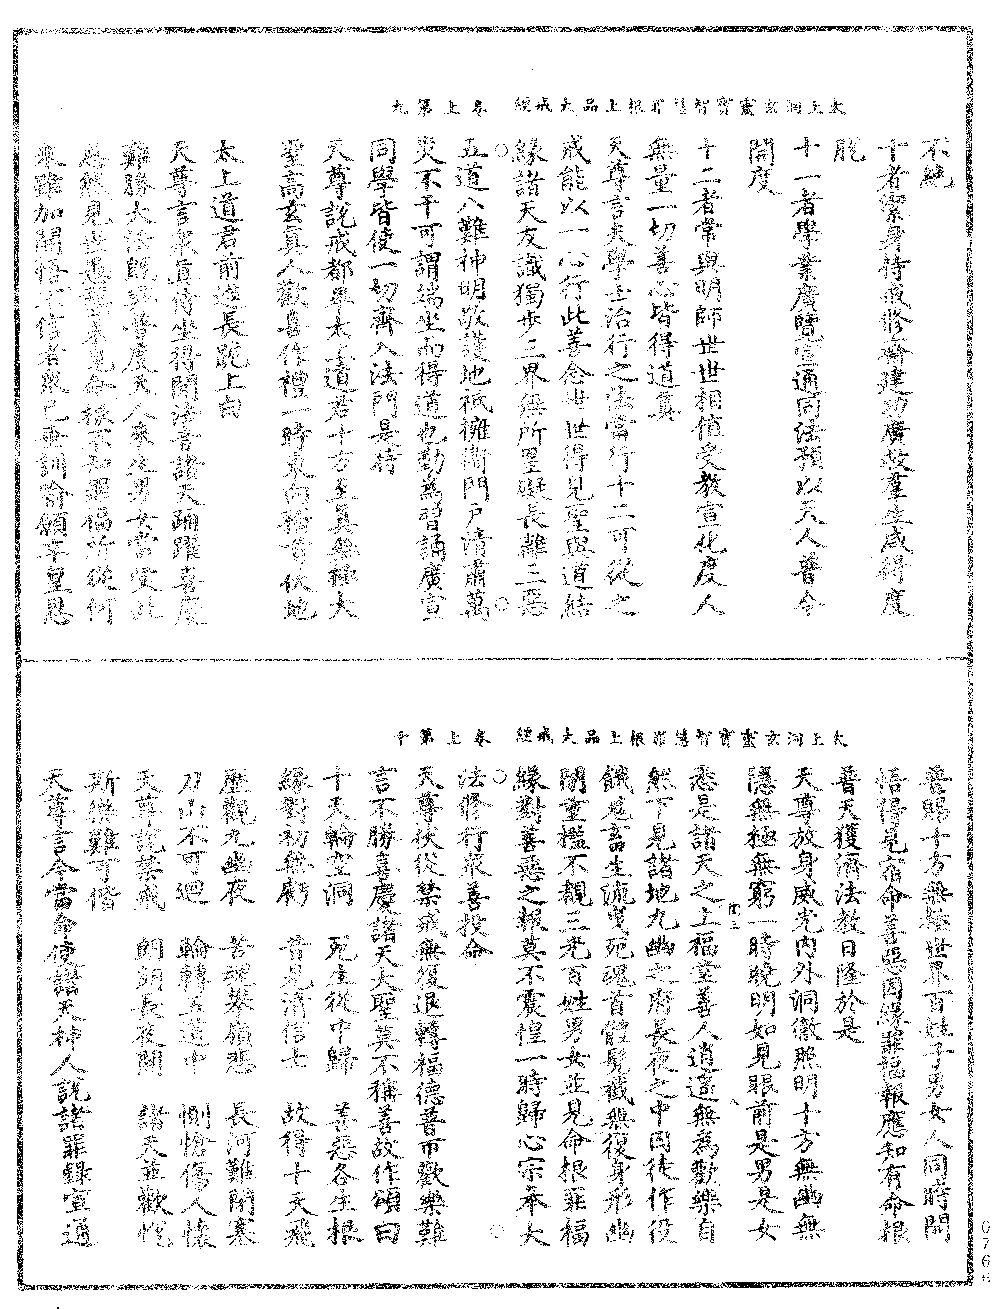 太上洞玄靈寶智慧罪根上品大戒經　卷上第九
不絕
十者潔身持戒修齋建功廣救羣生咸得度
脫
十一者學業廣覽宣通同法預以天人普令
開度
十二者常與明師世世相值受教宣化度人
無量一切善心皆得道真
天尊言夫學士治行之法當行十二可從之
戒能以一心行此善念世世得見聖與道結
緣諸天友識獨步三界無所罣礙長離三惡
五道八難神明敬護地祇擁衛門戶清肅萬
災不干可謂端坐而得道也勤為習誦廣宣
同學皆使一切齊入法門是時
天尊說戒都畢太上道君十方至真無極大
聖高玄真人歡喜作禮一時東向稽首伏地
太上道君前進長跪上白
天尊言眾真侍坐得聞法音諸天踊躍喜慶
難勝大法既興普度天人眾生男女當受此
恩然見世愚聾未見命根不知罪福所從何
來雖加開悟不信者眾已垂訓喻願幸皇恩
太上洞玄靈寶智慧罪根上品大戒經　卷上第十
善賜十方無極世界百姓子男女人同時開
悟得見宿命善惡因緣罪福報應知有命根
普天獲濟法教日隆於是
天尊放身威光內外洞徹照明十方無幽無
隱無極無窮一時曉明如見眼前是男是女
悉是諸天之上福堂善人逍遙無為歡樂自
然下見諸地九幽之府長夜之中囚徒作役
餓鬼畜生流曳死魂首體髡截無復身形幽
閉重檻不覩三光百姓男女並見命根罪福
緣對善惡之報莫不震惶一時歸心宗奉大
法修行眾善投命
天尊伏從禁戒無復退轉福德普帀歡樂難
言不勝喜慶諸天大聖莫不稱善故作頌曰
十天輪空洞　死生從中歸　善惡各生根
緣對初無虧　昔見清信士　故得十天飛
歷觀九幽夜　苦魂舉嶺悲　長河難閉塞
刀山不可迴　輪轉五道中　惻愴傷人懷
天尊說禁戒　朗朗長夜開　諸天並歡悅
斯樂難可偕
天尊言今當命使諸天神人說諸罪錄宣通